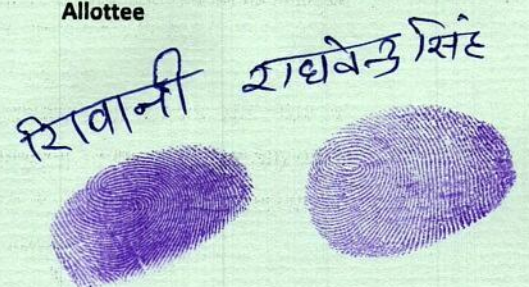 Allottee
शिवानी राघवेन्द्र सिंह